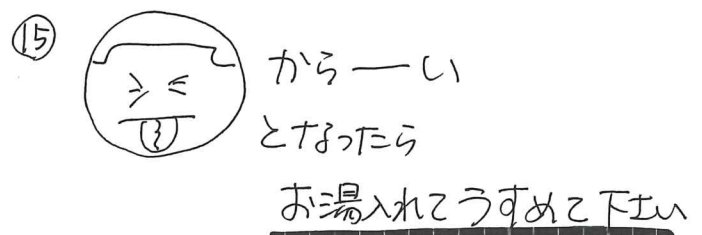 ⑮
からーい
となったら
お湯入れてうすめて下さい